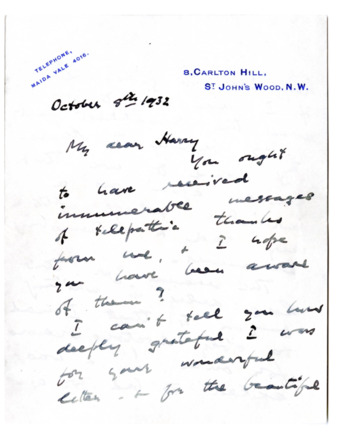 TELEPHONE,
MAIDA VALE 4016.
8, CARLTON HILL,
ST JOHN'S WOOD, N.W.
October 8th 1932
My dear Harry
You ought
to have received
innumerable messages
of telepathic thanks
from me, & I hope
you have been aware
of them?
I can't tell you how
deeply grateful I was
for your wonderful
letter - & for the beautiful